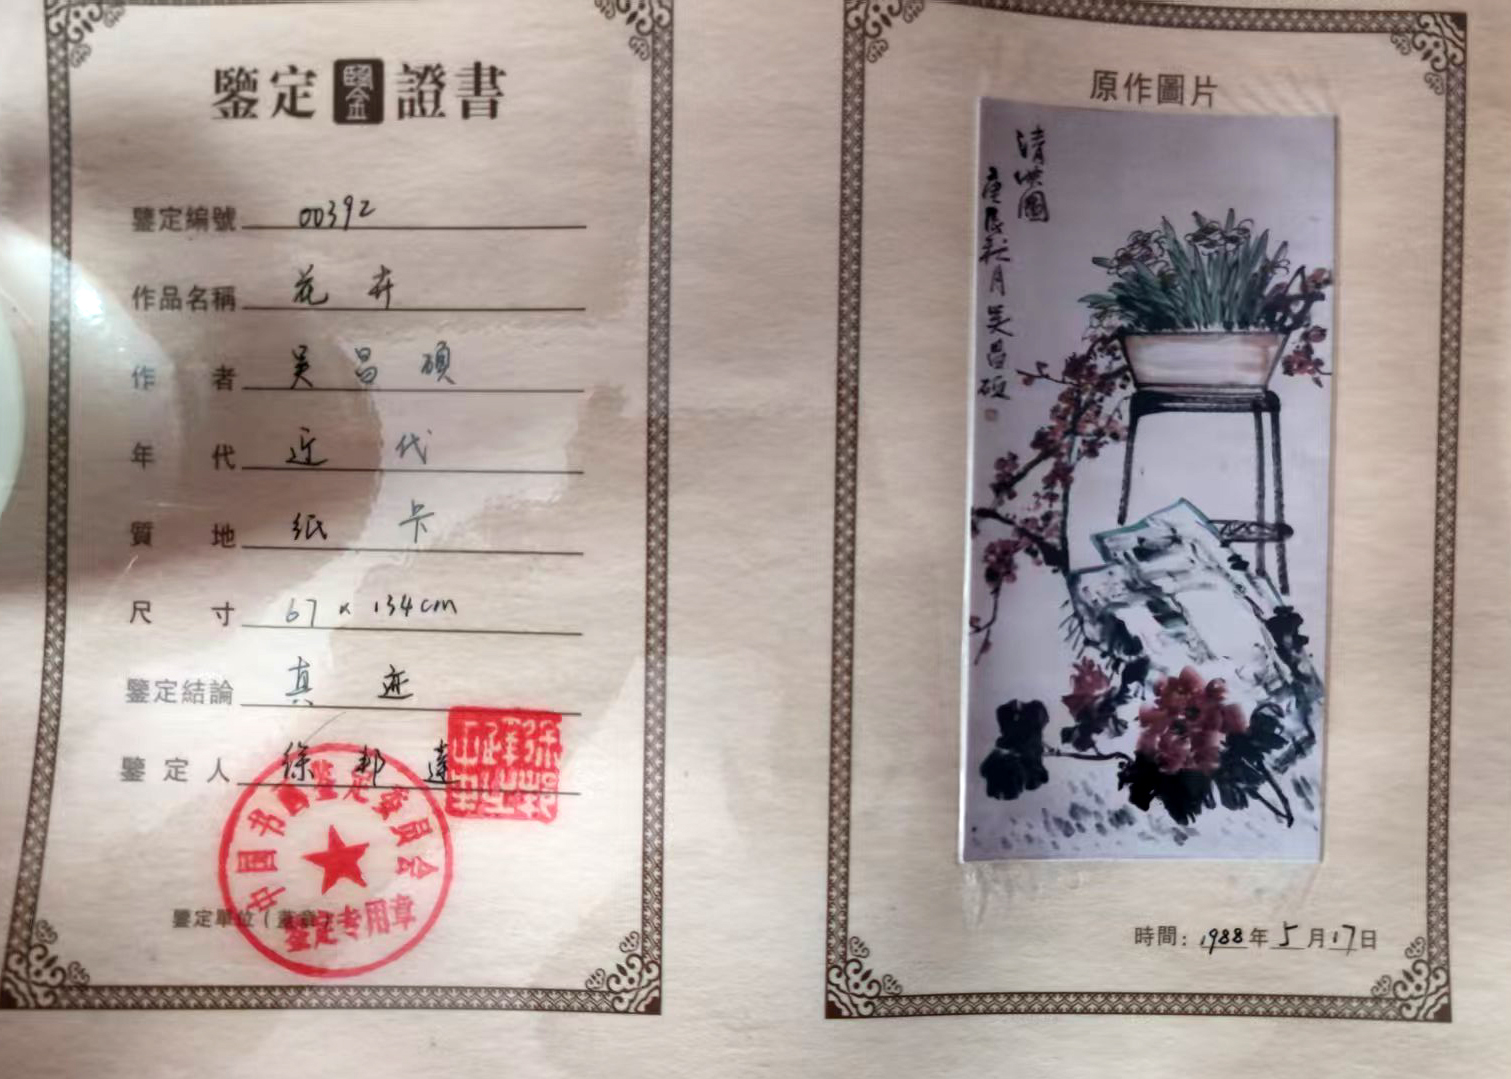 鑒定 鑒 證書
鑒定編號 00392
作品名稱 花卉
作者 吴昌硕
年代 近代
質地 纸卡
尺寸 67 x 134cm
鑒定結論 真迹
鑒定人 徐邦達
中国书画鉴定委员会
鉴定专用章
鑒定單位（蓋章）
原作圖片
清供圖
庚辰秋月吴昌硕
時間：1988年5月17日